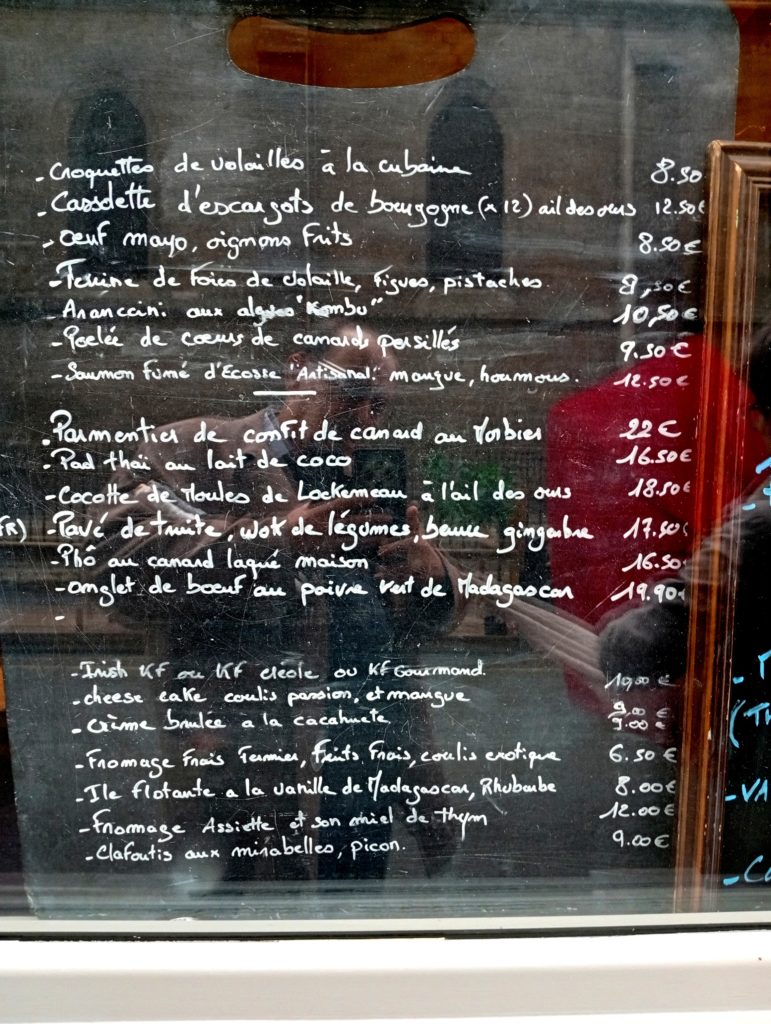 - Croquettes de volailles à la cubaine 8.50
- Cassolette d'escargots de bourgogne (x 12) ail des ours 12.50€
- Oeuf mayo, oignons frits 8.50€
- Terrine de foies de volaille, figues, pistaches 8,50€
- Aranccini aux algues "Kombu" 10,50€
- Poelée de coeurs de canards persillés 9.50€
- Saumon fumé d'Ecosse "Artisanal" mangue, houmous. 12.50€
- Parmentier de confit de canard au Morbier 22€
- Pad thaï au lait de coco 16.50€
- Cocotte de Moules de Lockemeau à l'ail des ours 18.50€
FR) - Pavé de truite, wok de légumes, beurre gingembre 17.50€
- Phô au canard laqué maison 16.50
- onglet de boeuf au poivre vert de Madagascar 19.90€
-
- Irish KF ou KF créole ou KF Gourmand. 10,00€
- cheese cake coulis passion, et mangue 9.00€
- Crème brulée a la cacahuete 9.00€
- Fromage Frais Fermier, fruits Frais, coulis exotique 6.50€
- Ile flotante a la vanille de Madagascar, Rhubarbe 8.00€
- Fromage Assiette et son miel de thym 12.00€
- Clafoutis aux mirabelles, picon. 9.00€
(Th
- VA